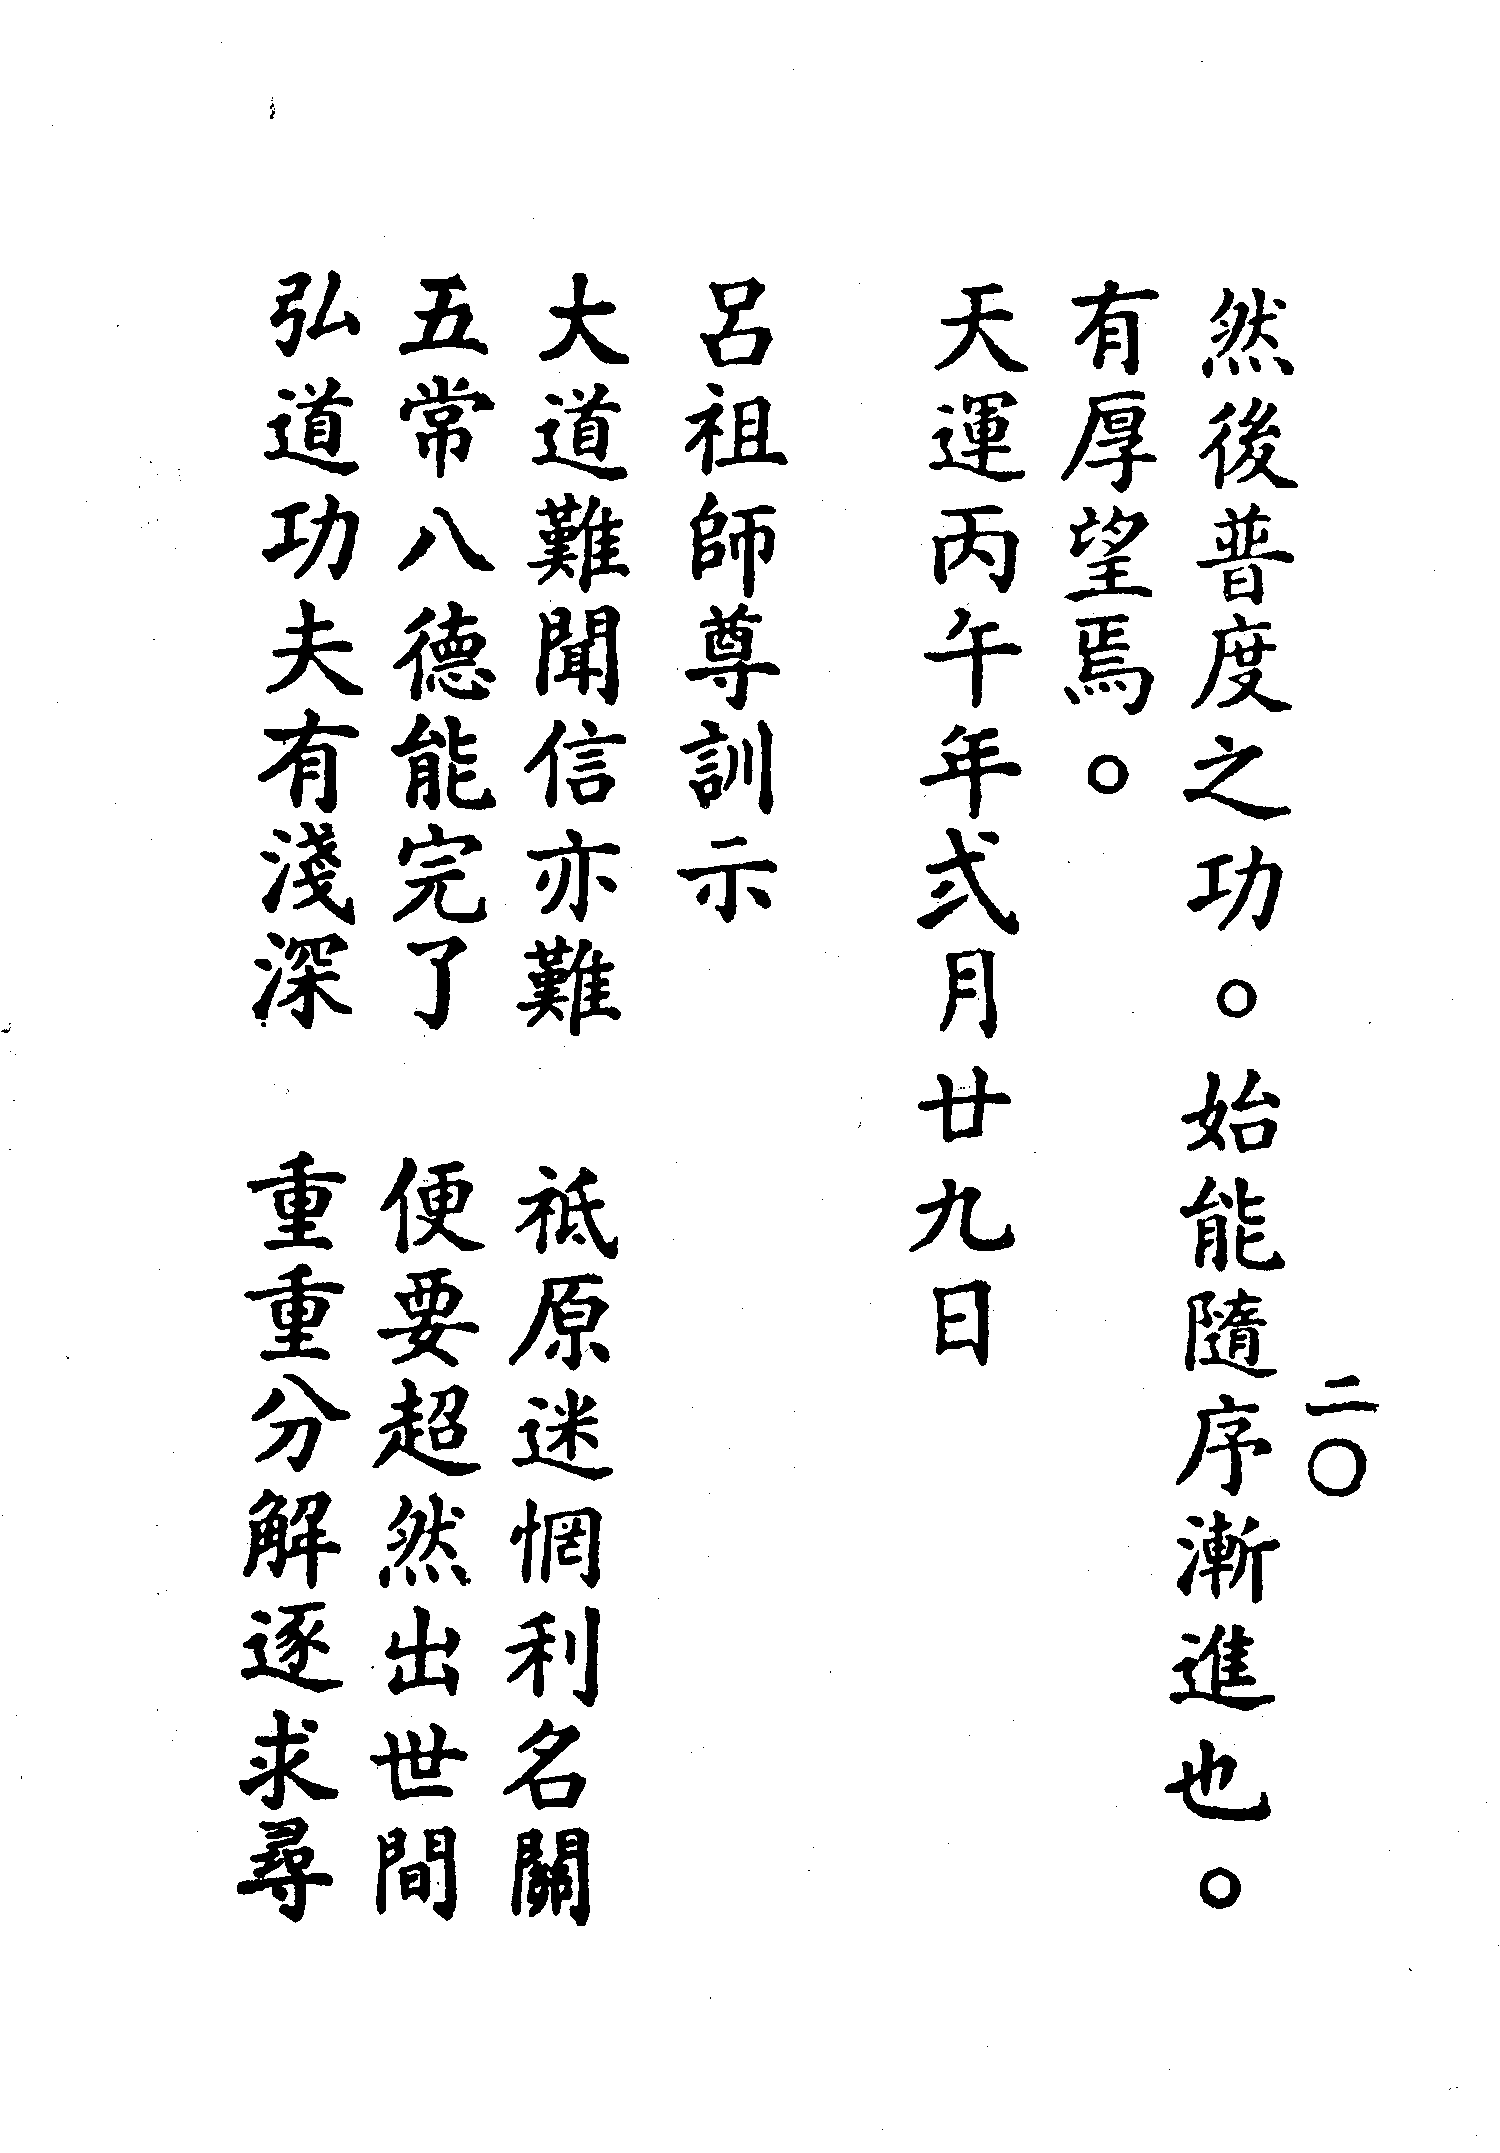 二〇
然後普度之功。始能隨序漸進也。
有厚望焉。
天運丙午年弍月廿九日
呂祖師尊訓示
大道難聞信亦難　祗原迷惘利名關
五常八德能完了　便要超然出世間
弘道功夫有淺深　重重分解逐求尋